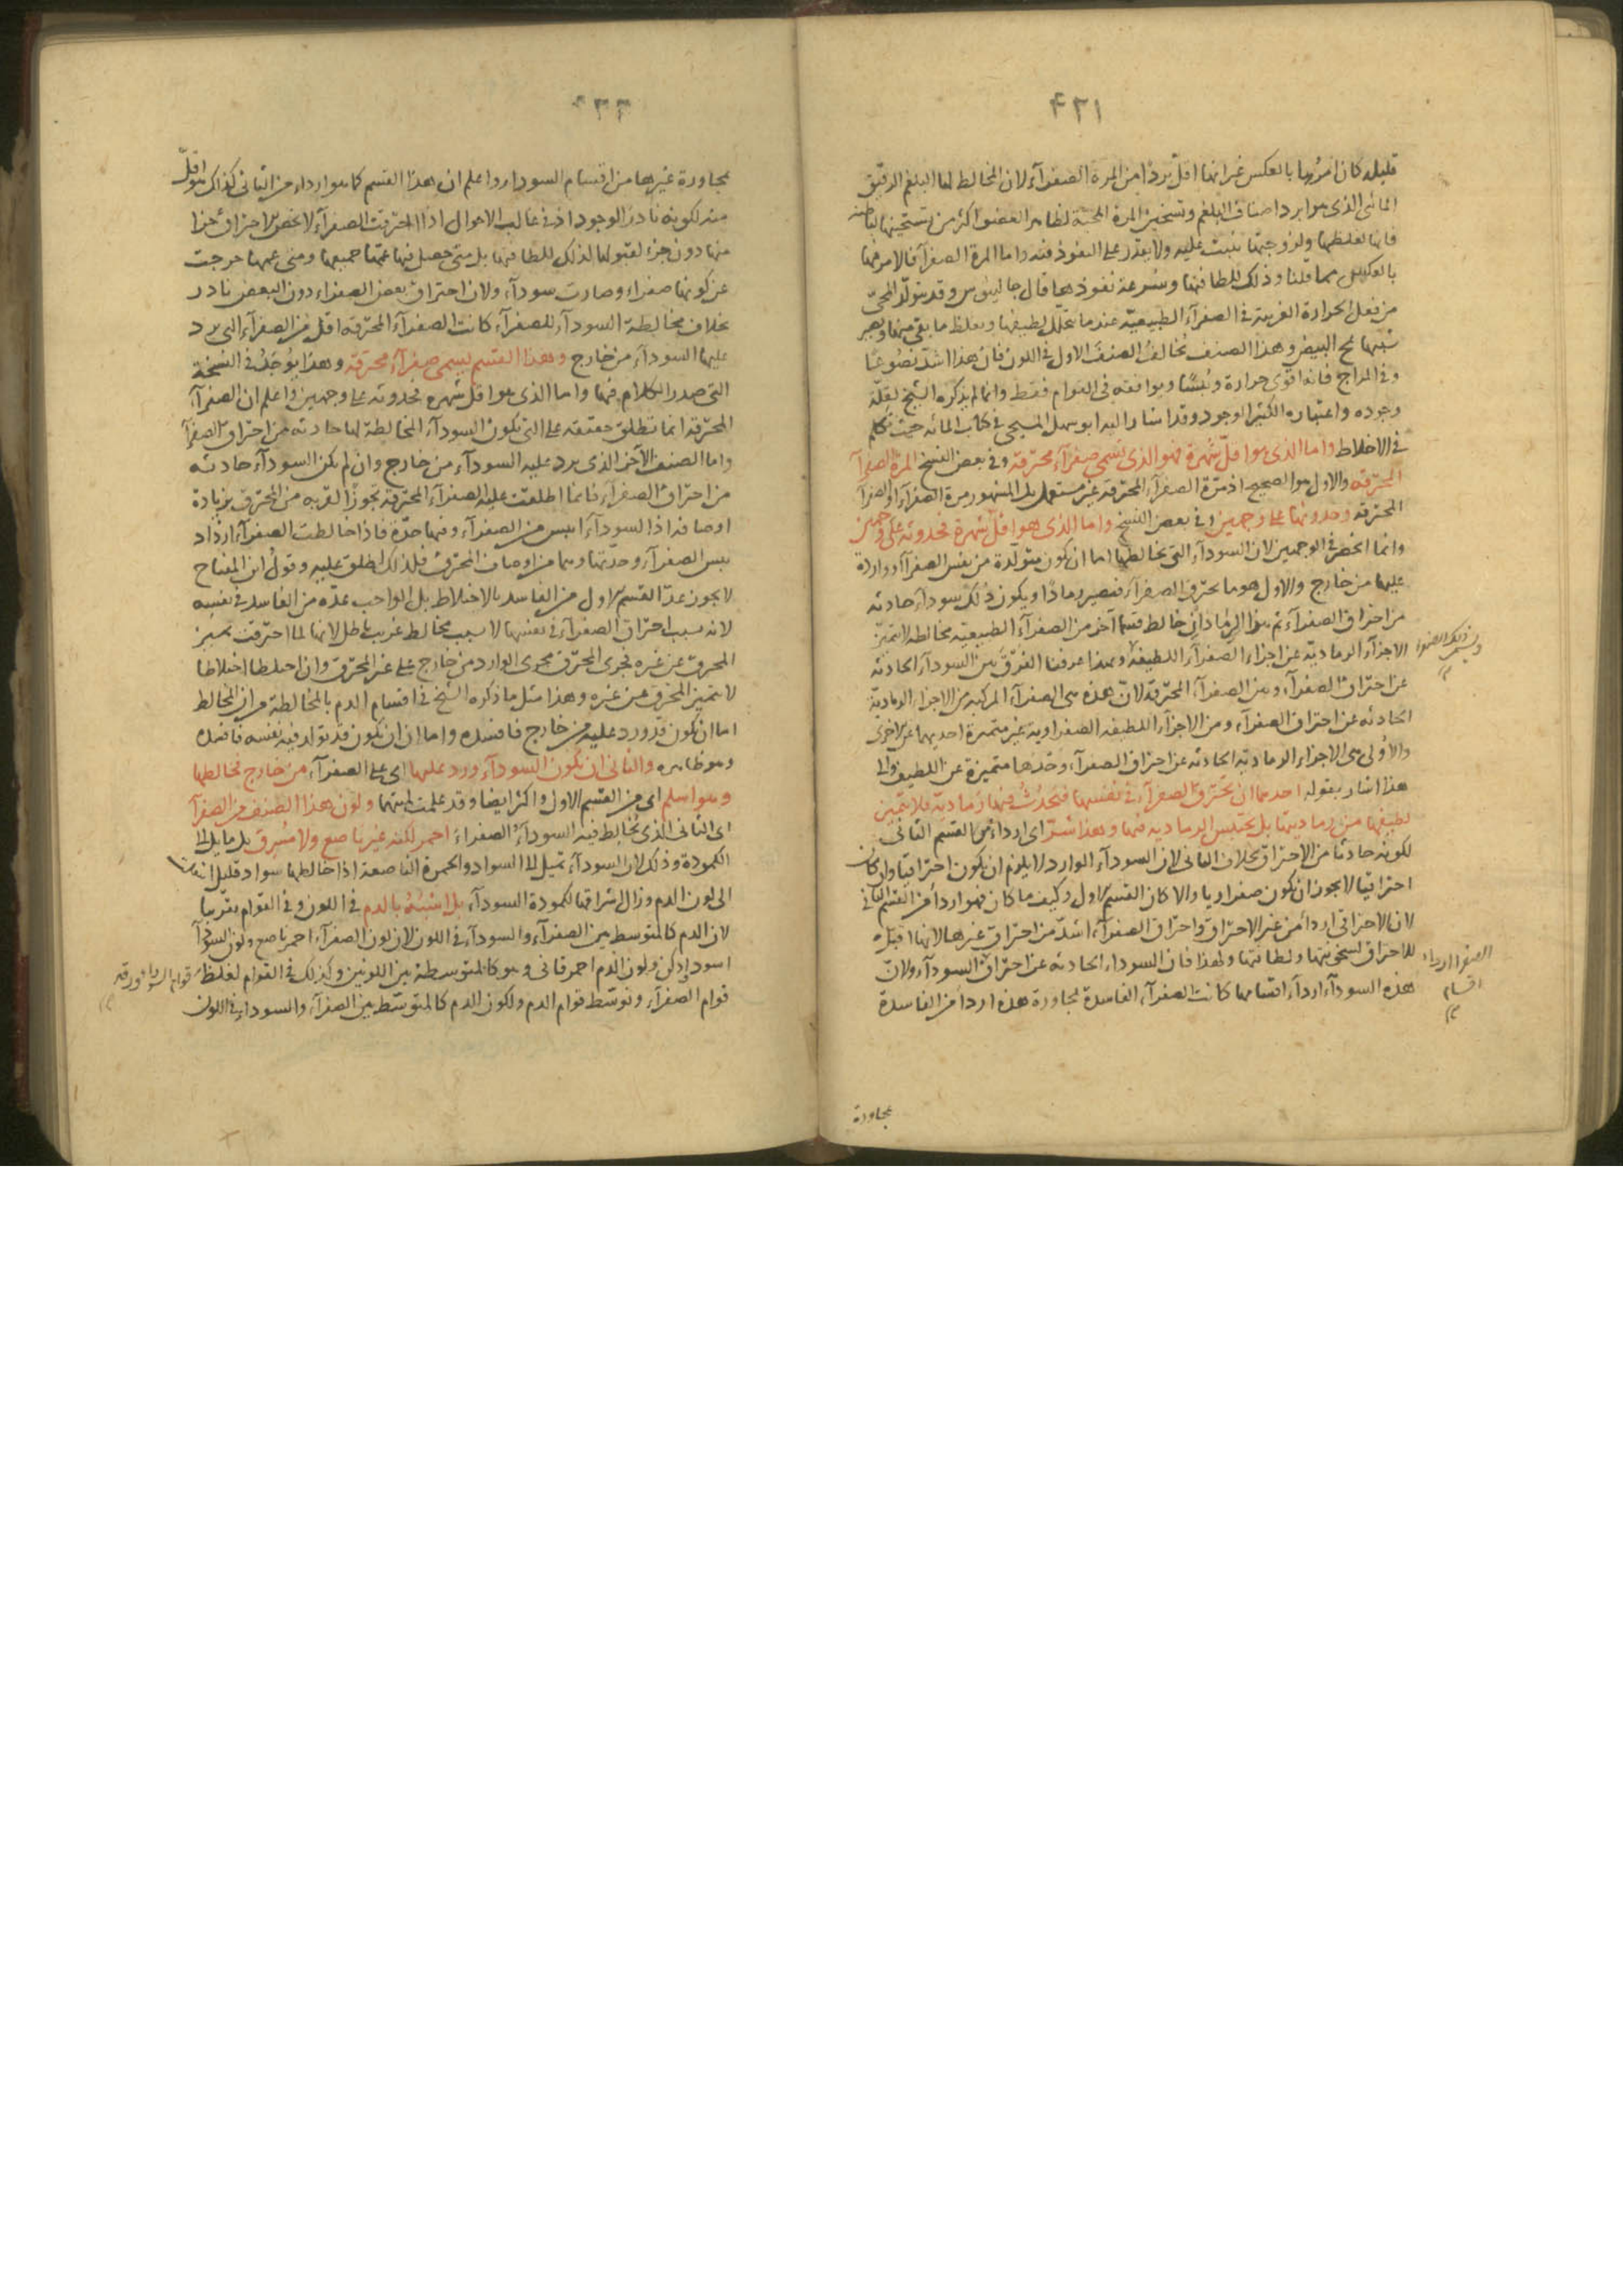 ٤٣١
قليله كان امرها بالعكس غير انها اقل بردا من المرة الصفرآء لان المخالط لها البلغم الرقيق
المائى الذى هو ابرد اصناف البلغم وتسخين المرة المحية لظاهر العضو اكثر من تسخينها لباطنه
فانها لغلظها ولزوجتها تثبت عليه ولا يقدر على النفوذ فيه واما المرة الصفرآء فالامر فيها
بالعكس مما قلنا وذلك للطافتها وسرعة نفوذها قال جالينوس وقد يتولد المحى
من فعل الحرارة الغريبة فى الصفرآء الطبيعية عندما يتحلل لطيفها ويغلظ ما بقى منها ويصير
شبيها بمح البيض وهذا الصنف يخالف الصنف الاول فى اللون فان هذا اشد نصوعا
وفى المزاج فانه اقوى حرارة ويبسا ويوافقه فى القوام فقط وانما لم يذكره الشيخ لقلة
وجوده واعتباره الكثير الوجود وقد اشار اليه ابو سهل المسيحى فى كتاب المائه حيث تكلم
فى الاخلاط واما الذى هو اقل شهرة فهو الذى يسمى صفرآء محترقة وفى بعض النسخ المرة الصفرآ
المحترقه والاول هو الصحيح اذ مرة الصفرآء المحترقة غير مستعمل بل المشهور مرة الصفرآء او الصفرآ
المحترقه وحدوثها على وجهين وفى بعض النسخ واما الذى هو اقل شهرة فحدوثه على وجهين
وانما انحصر فى الوجهين لان السودآء التى يخالطها اما ان يكون متولدة من نفس الصفرآء او واردة
عليها من خارج والاول هو ما يحترق الصفرآء فتصير رمادا ويكون ذلك سودآء حادثه
من احتراق الصفرآء ثم هذا الرماد ان خالط قسما آخر من الصفرآء الطبيعيه مخالطة لا يتميز
الاجزآء الرمادية عن اجزاء الصفرآء اللطيفة وبهذا عرفنا الفرق بين السودآء الحادثه
عن احتراق الصفرآء وبين الصفرآء المحترقة لان هذه هى الصفرآء المركبه من الاجزاء الرمادية
الحادثه عن احتراق الصفرآء ومن الاجزآء اللطيفه الصفراويه غير متميزة احديهما عن الاخرى
والاولى هى الاجزاء الرمادية الحادثه عن احتراق الصفرآء وحدها متميزة عن اللطيف والى
هذا اشار بقوله احدهما ان تحترق الصفرآء فى نفسها فيحدث فيها رمادية فلا يتميز
لطيفها من رماديتها بل يحتبس الرماديه فيها وهذا شر اى اردا من القسم الثانى
لكونه حادثا من الاحتراق بخلاف الثانى لان السودآء الوارد لا يلزم ان يكون احتراقيا وان كان
احتراقيا لا يجوز ان يكون صفراويا والا كان القسم الاول وكيف ما كان فهو اردأ من القسم الثانى
لان الاحتراقى اردأ من غير الاحتراق واحتراق الصفرآء اشد من احتراق غيرها لانها اقبل
للاحتراق لسخونتها ولطافتها ولهذا فان السوداء الحادثه عن احتراق السودآء ولان
هذه السودآء اردآء اقسامها كانت الصفرآء الفاسدة لمجاورة هذه اردأ من الفاسدة
الصفرا اردا
اقسام
مجاورة
بمجاورة غيرها من اقسام السودا واعلم ان هذا القسم كما هو اردا من الثانى كذلك هو اقل
منه لكونه نادر الوجود اذ فى غالب الاحوال اذا احترقت الصفرآء لا يخص الاحتراق جزا
منها دون جزء لقبولها لذلك للطافتها بل متى حصل فيها عمها جميعها ومتى عمها خرجت
عن كونها صفراء وصارت سودآء ولان احتراق بعض الصفراء دون البعض نادر
بخلاف مخالطة السودآء للصفرآء كانت الصفرآء المحترقه اقل من الصفرآء التى يرد
عليها السودآء من خارج وهذا القسم يسمى صفرآء محترقة وهذا يوجد فى النسخة
التى صدر الكلام فيها واما الذى هو اقل شهره فحدوثه على وجهين واعلم ان الصفرآء
المحترقة انما تطلق حقيقه على التى يكون السودآء المخالطة لها حادثه من احتراق الصفرآ
واما الصنف الآخر الذى يرد عليه السودآء من خارج وان لم يكن السودآء حادثه
من احتراق الصفرآء فانما اطلقت عليه الصفرآء المحترقة تجوزا لقربه من المحترق بزيادة
اوصافه اذ السودآء ايبس من الصفرآء وفيها حدة فاذا خالطت الصفرآء ازداد
يبس الصفرآء وحدتها وهما من اوصاف المحترق فلذلك اطلق عليه وقول ابن المفتاح
لا يجوز عد القسم الاول من الفاسد بالاختلاط بل الواجب عده من الفاسد فى نفسه
لانه بسبب احتراق الصفرآء فى نفسها لا بسبب مخالط غريب باطل لانها لما احترقت تميز
المحترق عن غيره فجرى المحترق مجرى الوارد من خارج على غير المحترق وان اختلطا اختلاطا
لا يتميز المحترق عن غيره وهذا مثل ما ذكره الشيخ فى اقسام الدم بالمخالطة من ان المخالط
اما ان يكون قد ورد عليه من خارج فافسده واما ان يكون قد تولد فيه نفسه فافسده
وهو ظاهر والثانى ان يكون السودآء ورد عليها اى على الصفرآء من خارج فخالطها
وهو اسلم اى من القسم الاول واكثر ايضا وقد علمت لميتهما ولون هذا الصنف من الصفرآ
اى الثانى الذى يخالط فيه السودآء الصفراء احمر لكنه غير ناصع ولا مشرق بل مايل الى
الكمودة وذلك لان السودآء تميل الى السواد والحمرة الناصعة اذا خالطها سواد قليل
الى لون الدم وزال اشراقها لكمودة السودآء بل اشبه بالدم فى اللون وفى القوام تقريبا
لان الدم كالمتوسط بين الصفرآء والسودآء فى اللون لان لون الصفرآء احمر ناصع ولون السودآ
اسود ادكن ولون الدم احمر قانى وهو كالمتوسطة بين اللونين وكذلك فى القوام لغلظ
قوام الصفرآء وتوسط قوام الدم ولكون الدم كالمتوسط بين الصفرآء والسوداء فى اللون